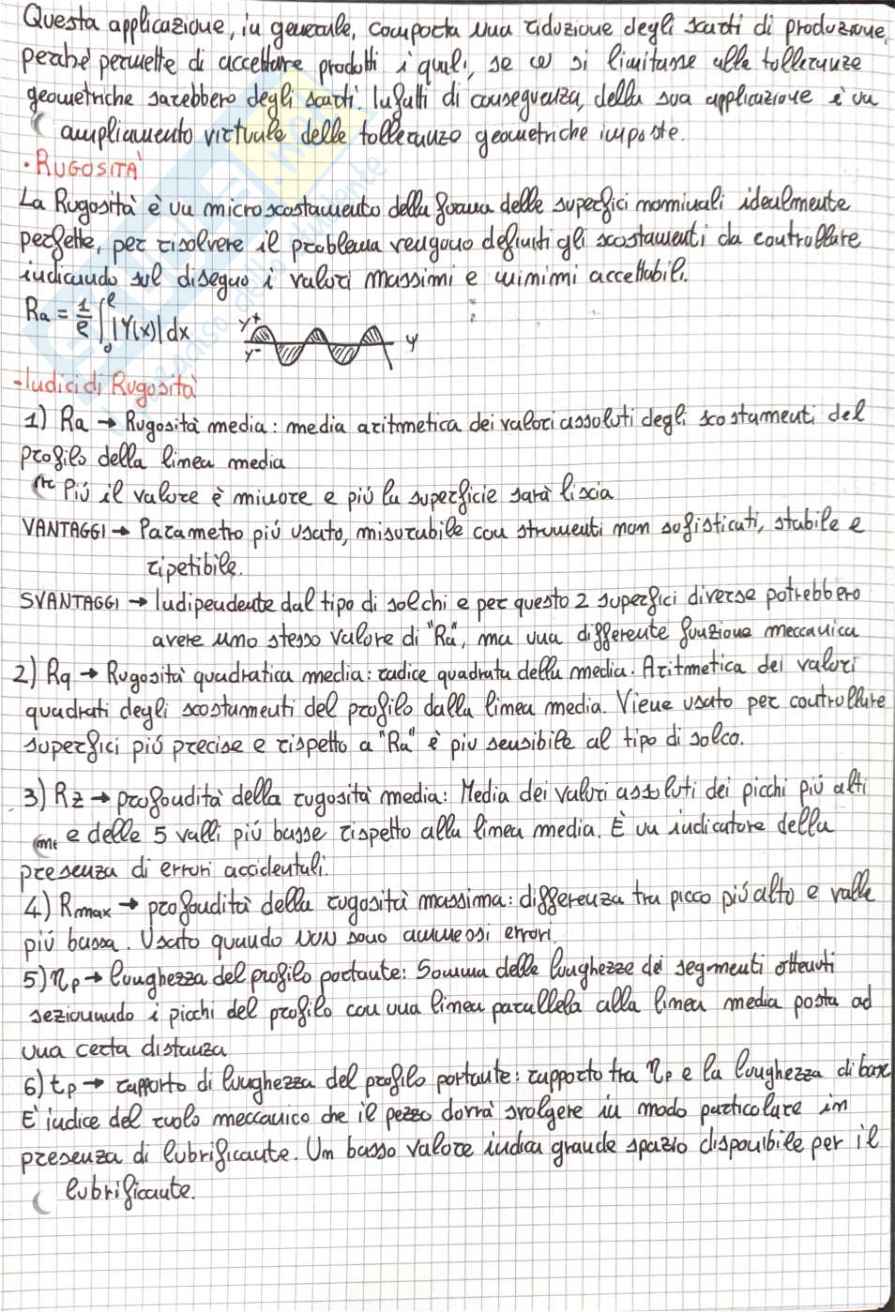 Questa applicazione, in generale, comporta una riduzione degli scarti di produzione,
perché permette di accettare prodotti i quali, se ci si limitasse alle tolleranze
geometriche sarebbero degli scarti. Infatti di conseguenza, della sua applicazione è un
ampliamento virtuale delle tolleranze geometriche imposte.
• RUGOSITÀ
La Rugosità è un microscostamento della forma delle superfici nominali idealmente
perfette, per risolvere il problema vengono definiti gli scostamenti da controllare
indicando sul disegno i valori massimi e minimi accettabili.
Ra = 1/e ∫₀ᵉ |Y(x)| dx Y+ Y- Y
- Indici di Rugosità
1) Ra → Rugosità media: media aritmetica dei valori assoluti degli scostamenti del
profilo della linea media
Più il valore è minore e più la superficie sarà liscia
VANTAGGI → Parametro più usato, misurabile con strumenti non sofisticati, stabile e
ripetibile.
SVANTAGGI → Indipendente dal tipo di solchi e per questo 2 superfici diverse potrebbero
avere uno stesso valore di "Ra", ma una differente funzione meccanica
2) Rq → Rugosità quadratica media: radice quadrata della media. Aritmetica dei valori
quadrati degli scostamenti del profilo dalla linea media. Viene usato per controllare
superfici più precise e rispetto a "Ra" è più sensibile al tipo di solco.
3) Rz → profondità della rugosità media: Media dei valori assoluti dei picchi più alti
e delle 5 valli più basse rispetto alla linea media. È un indicatore della
presenza di errori accidentali.
4) Rmax → profondità della rugosità massima: differenza tra picco più alto e valle
più bassa. Usato quando NON sono ammessi errori.
5) ηp → lunghezza del profilo portante: Somma delle lunghezze dei segmenti ottenuti
sezionando i picchi del profilo con una linea parallela alla linea media posta ad
una certa distanza
6) tp → rapporto di lunghezza del profilo portante: rapporto tra ηp e la lunghezza di base
E' indice del ruolo meccanico che il pezzo dovrà svolgere in modo particolare in
presenza di lubrificante. Un basso valore indica grande spazio disponibile per il
lubrificante.